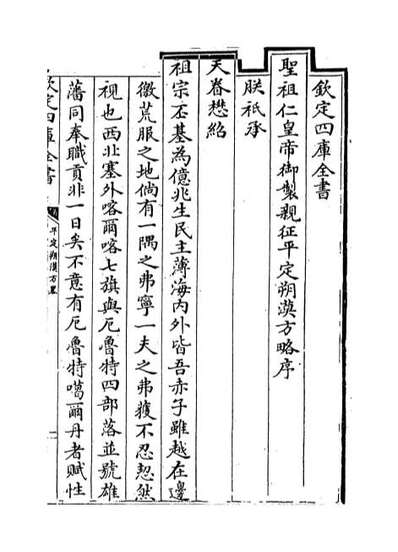 欽定四庫全書
聖祖仁皇帝御製親征平定朔漠方略序
朕祗承
天眷懋紹
祖宗丕基為億兆生民主薄海内外皆吾赤子雖越在邊
徼荒服之地倘有一隅之弗寧一夫之弗獲不忍恝然
視也西北塞外喀爾喀七旗與厄魯特四部落並號雄
藩同奉職貢非一日矣不意有厄魯特噶爾丹者賦性
欽定四庫全書
平定朔漠方畧
一